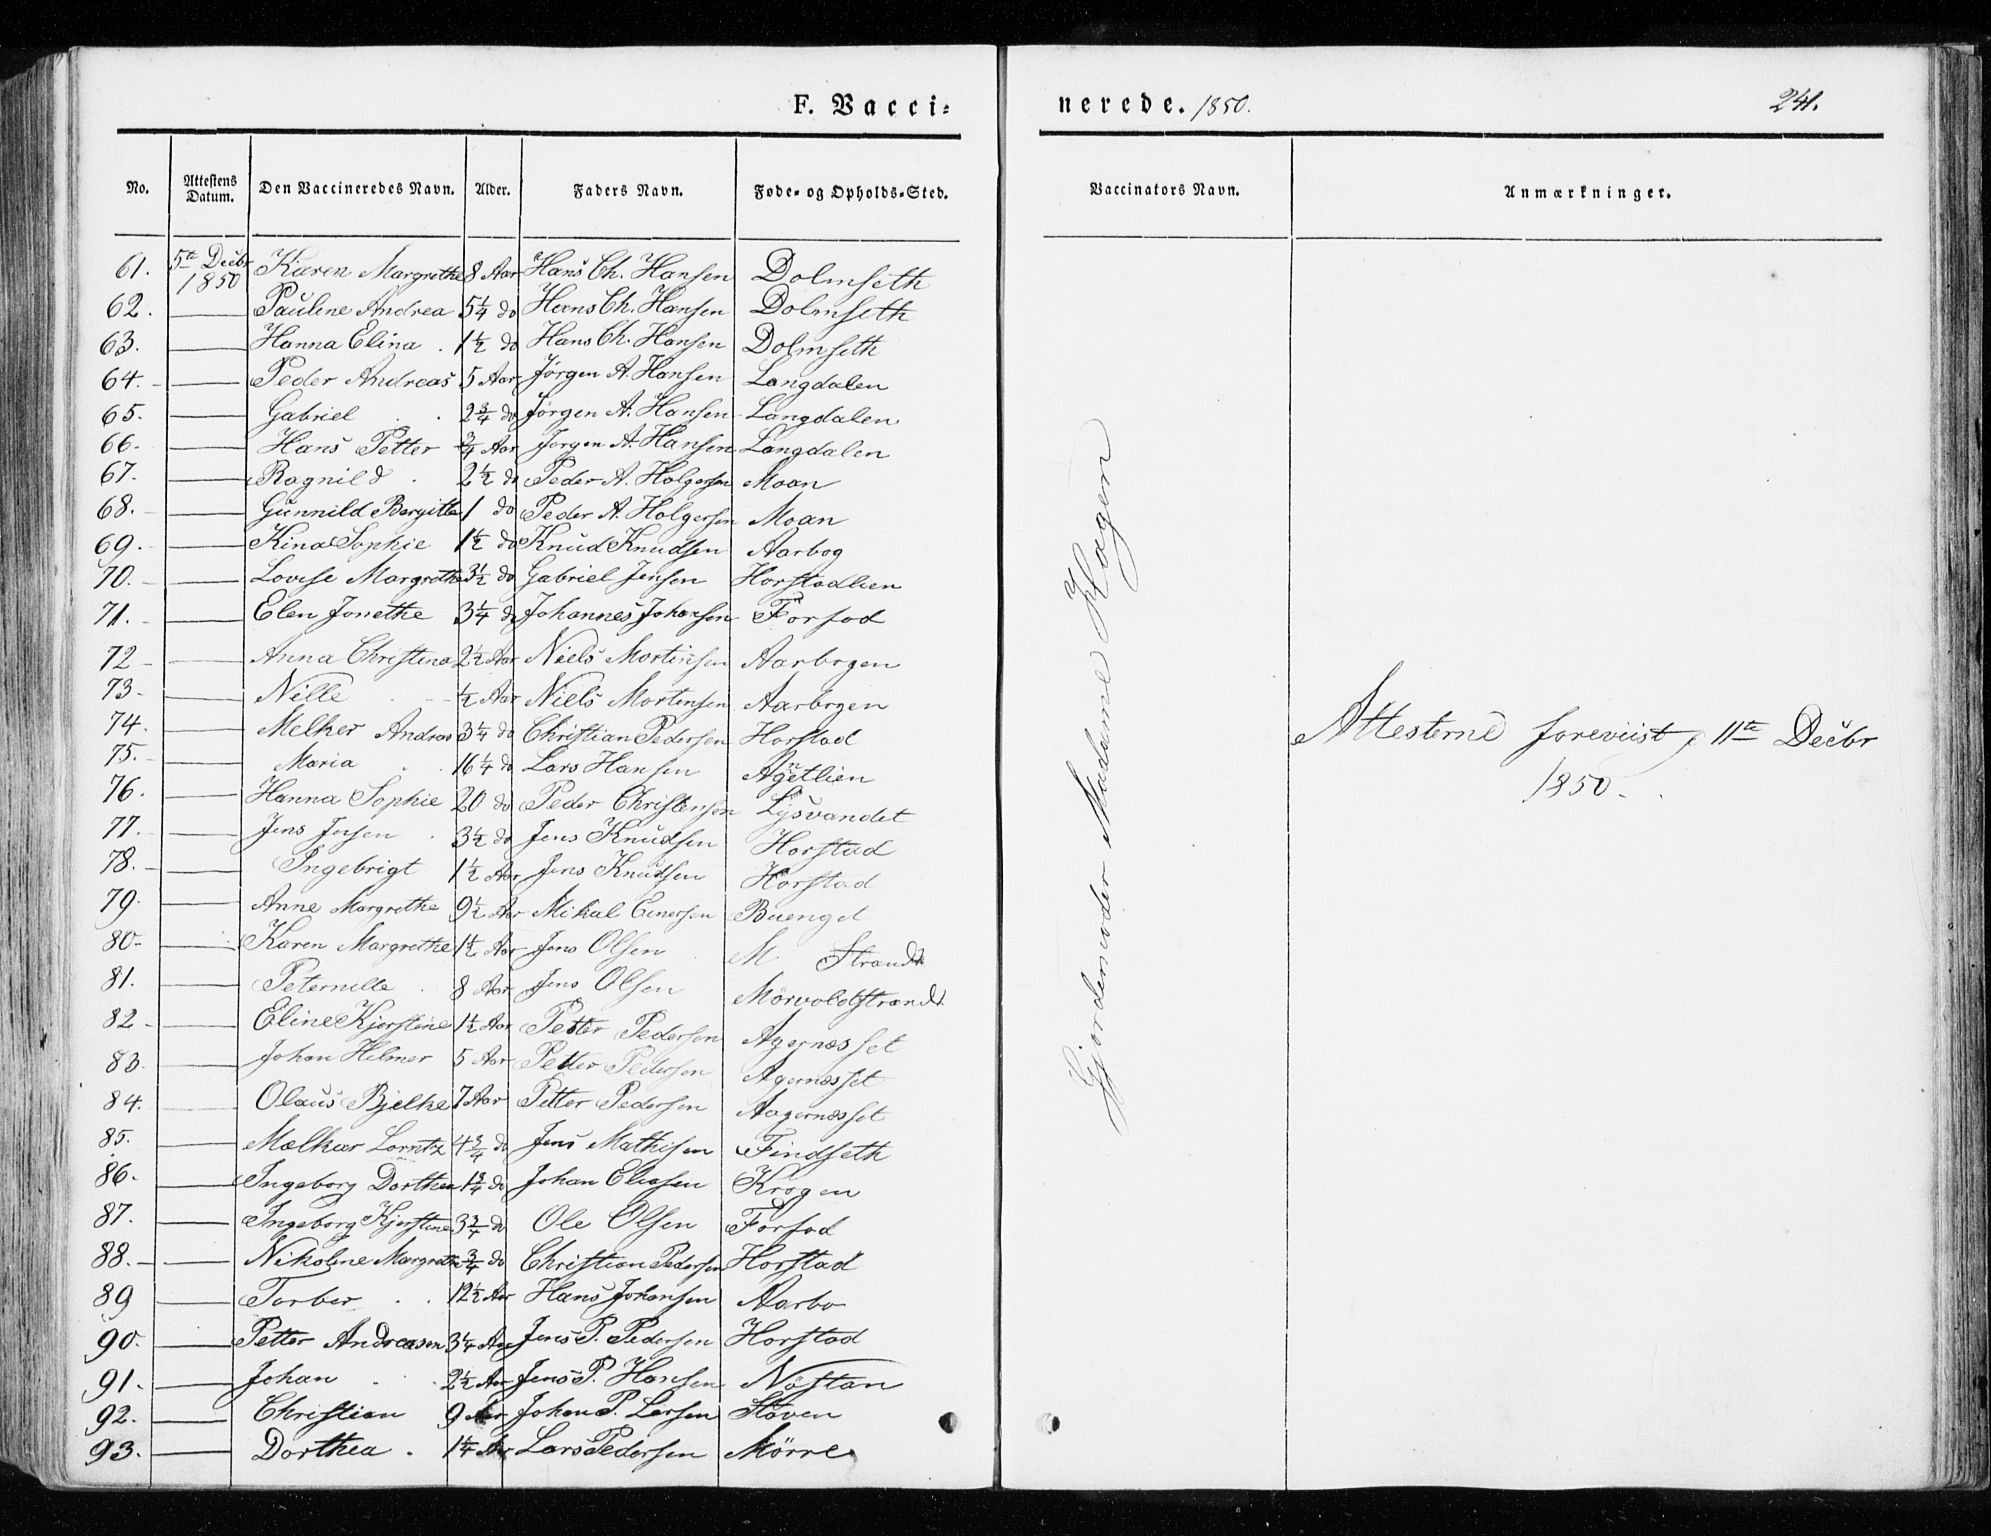 F. Vacci=
nerede. 1850.
241.
No. Attestens Datum. Den Vaccineredes Navn. Alder. Faders Navn. Føde= og Opholds=Sted. Vaccinators Navn. Anmærkninger.
61. 5te Decbr 1850 Karen Margrethe 8 Aar Hans Ch. Hansen Dolmseth
62. Pauline Andrea 5 1/4 do Hans Ch. Hansen Dolmseth
63. Hanna Elina 1 1/2 do Hans Ch. Hansen Dolmseth
64. Peder Andreas 5 Aar Jørgen A. Hansen Langdalen
65. Gabriel 2 3/4 do Jørgen A. Hansen Langdalen
66. Hans Petter 3/4 Aar Jørgen A. Hansen Langdalen
67. Ragnild 2 1/2 do Peder A. Holgersen Moan
68. Gunnild Bergitta 1 do Peder A. Holgersen Moan
69. Kina Sophie 1 1/2 do Knud Knudsen Aarbog
70. Lovise Margrethe 3 1/2 do Gabriel Jensen Horstadlien
71. Elen Jonethe 3 1/4 do Johannes Johansen Forfod
72 Anna Christina 2 1/2 Aar Niels Mortensen Aarbogen
73. Nille 1/2 Aar Niels Mortensen Aarbogen
74. Melker Andreas 3 1/4 do Christian Pedersen Horstad
75. Maria 16 1/4 do Lars Hansen
76. Hanna Sophie 20 do Peder Christensen Lysvandet
77. Jens Jensen 3 1/2 do Jens Knudsen Horstad
78. Ingebrigt 1 1/2 Aar Jens Knudsen Horstad
79. Anne Margrethe 9 1/2 Aar Mikal Einersen Buenget
80. Karen Margrethe 1 1/2 Aar Jens Olsen M Strand
81. Peternille 8 Aar Jens Olsen Mörvoldstrand
82 Eline Kjerstine 1 1/2 Aar Petter Pedersen Agernæsset
83. Johan Hilmer 5 Aar Petter Pedersen Agernæsset
84. Olaus Bjelke 7 Aar Petter Pedersen Aagernæsset
85. Mælkær Lorntz 4 3/4 do Jens Mathisen Findseth
86. Ingeborg Dorthea 1 3/4 do Johan Eliasen Krogen
87. Ingeborg Kjerstine 3 3/4 do Ole Olsen Forfod
88. Nikoline Margrethe 3/4 do Christian Pedersen Horstad
89 Torber 12 1/2 Aar Hans Johansen Aarbo
90. Petter Andreasen 3 1/4 Aar Jens P. Pedersen Horstad
91. Johan 2 1/2 Aar Jens P. Hansen Nöstan
92. Christian 9 Aar Johan P. Larsen Støven
93. Dorthea 1 1/4 Aar Lars Pedersen Mörre
Gjordemoder Madame Hagen
Attesterne foreviist 11te Decbr
1850.